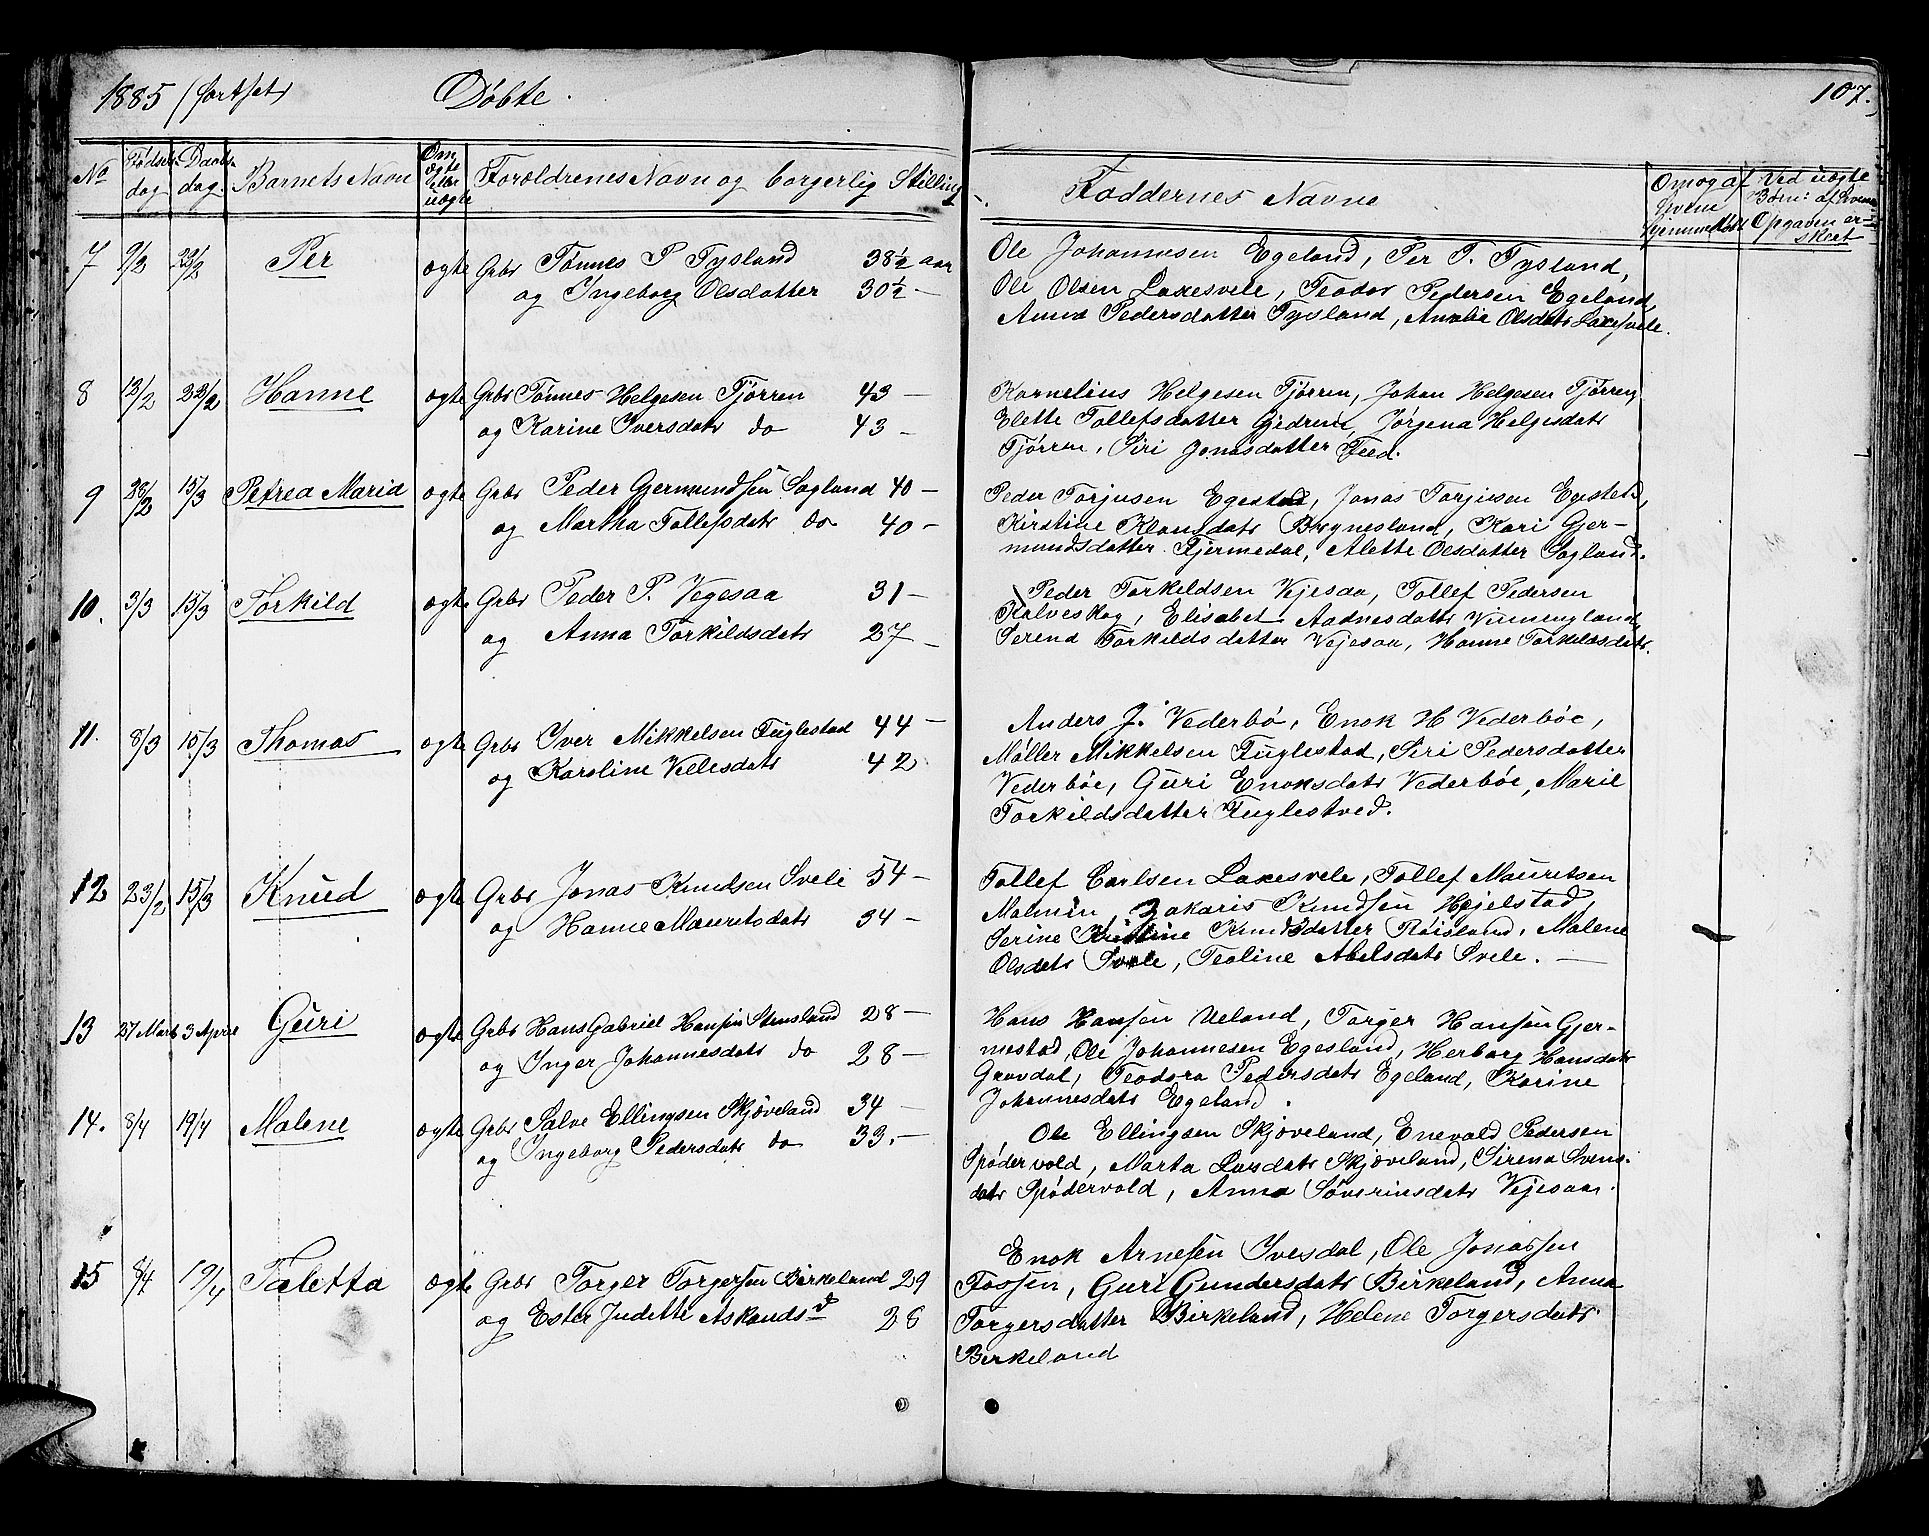 1885 (fortsat) Döbte. 107.
No Fødsels dag Daabs dag. Barnets Navn Om ægte eller uægte Forældrenes Navn og borgerlig Stilling. Faddernes Navne Om og af hvem hjemmedøbt Ved uægte Børn: af hvem Opgaven er skeet
7 9/2 22/2 Per ægte Grbr Tönnes P Tysland 38½ aar
og Ingeborg Olsdatter 30½ —
Ole Johannesen Egeland, Per T. Tysland,
Ole Olsen Laxesvele, Teodor Pedersen Egeland,
Anna Pedersdatter Tysland, Amalie Olsdatr Laxesvele.
8 12/2 22/2 Hanne ægte Grbr Tönnes Helgesen Tjörren 43 —
og Karine Iversdatr do 43 —
Kornelius Helgesen Tjörren, Johan Helgesen Tjörren,
Elette Tollefsdatter, Jörgena Helgesdatr
Tjörren, Siri Jonasdatter Feed.
9 28/2 15/3 Petrea Maria ægte Grbr Peder Germundsen Sagland 40 —
og Martha Tollefsdatr do 40 —
Peder Torjusen Egestad, Jonas Torjusen Egested,
Kirstine Klausdatr Brynesland, Kari Ger-
mundsdatter Fjermedal, Alette Olsdatter Sagland.
10. 3/3 15/3 Torkild ægte Grbr Peder P. Vegesaa 31 —
og Anna Torkildsdatr 27 —
Peder Torkildsen Vejesaa, Tollef Pedersen
Kalveskag, Elisabet Aadnesdatr Vinningland,
Serena Torkildsdatter Vejesaa, Hanne Torkildsdatr.
11. 8/3 15/3 Thomas ægte Grbr Iver Mikkelsen Fuglestad 44 —
og Karoline Vellesdatr 42
Anders J. Vederbö, Enok H Vederböe,
Möller Mikkelsen Fuglestad, Siri Pedersdatter
Vederböe, Guri Enoksdatr Vederböe, Marie
Torkildsdatter Fuglestved.
12 23/2 15/3 Knud ægte Grbr Jonas Knudsen Svele 54 —
og Hanne Mauritsdatr 34 —
Tollef Carlsen Laxesvele, Tollef Mauritsen
Malmin, Zakaris Knudsen Hejelstad,
Serine Kristine Knudsdatter Röisland, Malene
Olsdatr Svele, Teoline Abelsdatr Svele. —
13 27 Marts 3 April Guri ægte Grbr Hans Gabriel Hansen Stensland 28 —
og Inger Johannesdatr do 28 —
Hans Hansen Ueland, Torger Hansen Gjer-
mestad, Ole Johannesen Egesland, Herborg Hansdatr
Gravdal, Teodora Pedersdatr Egeland, Karine
Johannesdatr Egeland.
14. 8/4 19/4 Malene ægte Grbr Salve Ellingsen Skjöveland 34 —
og Ingeborg Pedersdatr do 33. —
Ole Ellingsen Skjöveland, Enevald Pedersen
Spödervold, Marta Larsdatr Skjöveland, Sirena Svens-
datr Spödervold, Anna Söverinsdatr Vejesaa.
15 8/4 19/4 Taletta ægte Grbr Torger Torgersen Birkeland 29
og Ester Juditte Askandsd 28
Enok Arnesen Ivesdal, Ole Jonassen
Fossen, Guri Gundersdatr Birkeland, Anna
Torgersdatter Birkeland, Helene Torgersdatr
Birkeland